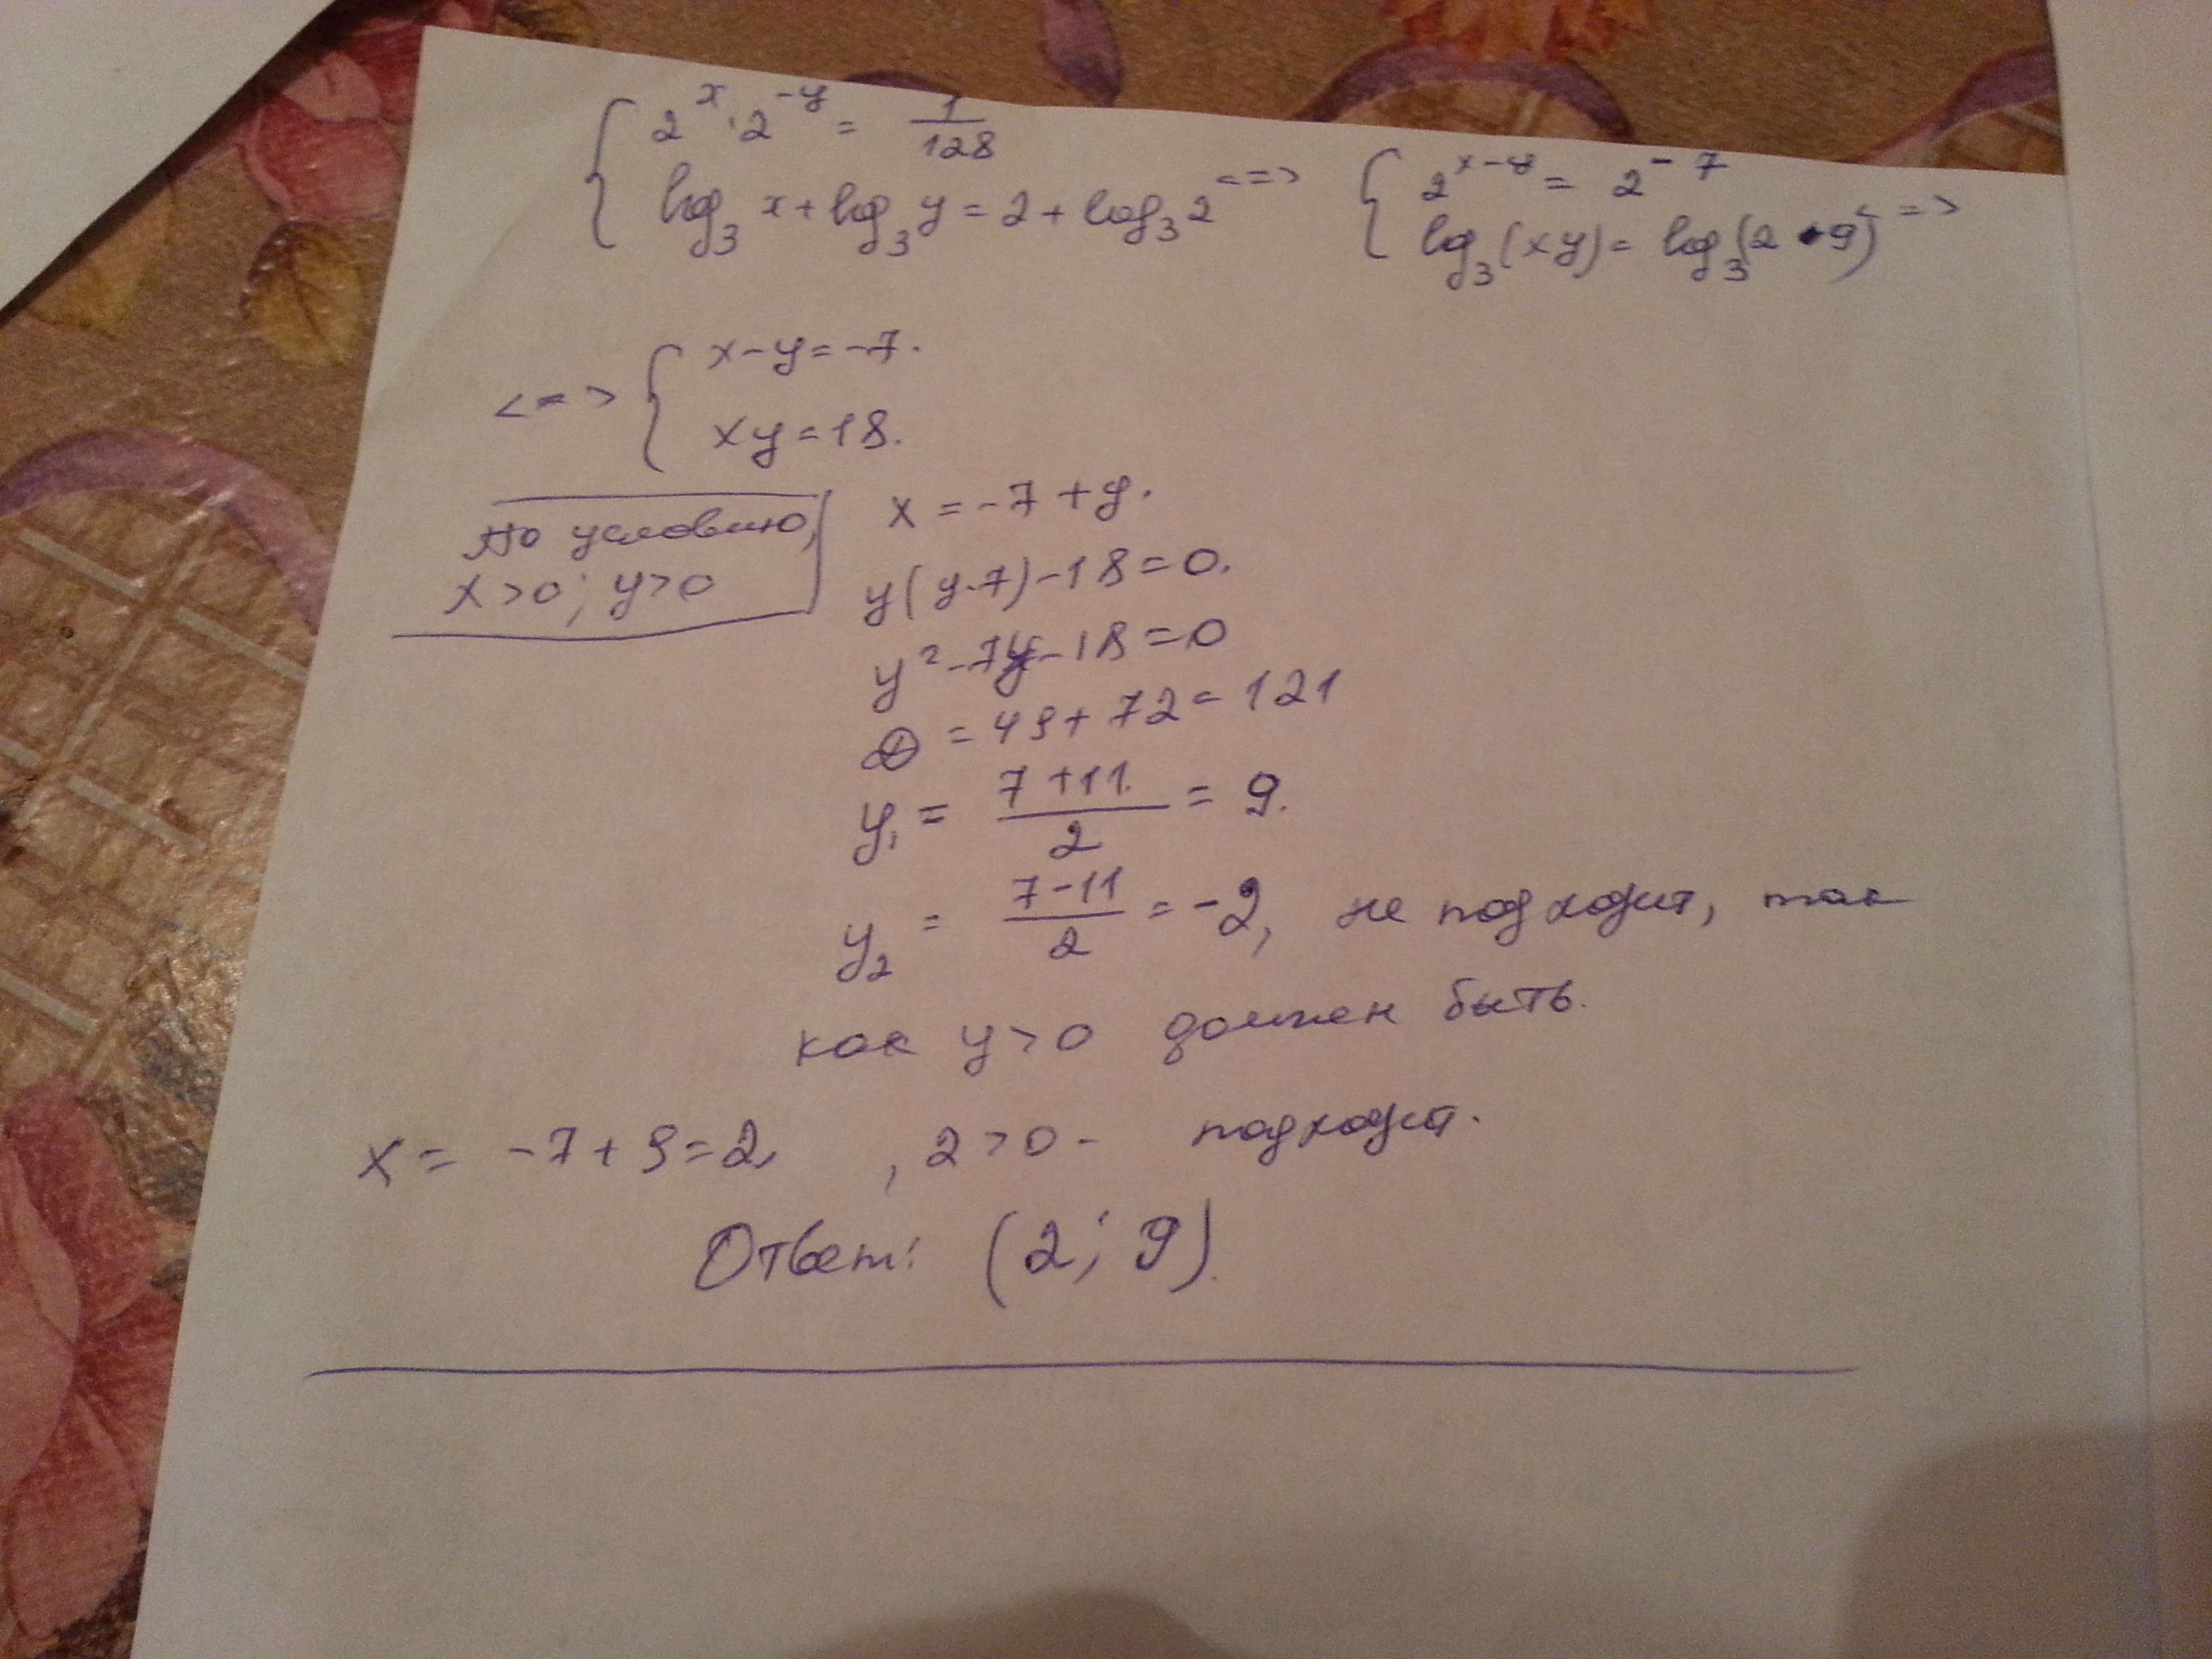 { 2^x · 2^-y = 1/128
log_3 x + log_3 y = 2 + log_3 2 <=> { 2^x-y = 2^-7
log_3 (xy) = log_3 (2 · 9) <=>
<=> { x - y = -7.
xy = 18.
По условию,
x > 0; y > 0
x = -7 + y.
y(y-7) - 18 = 0.
y² - 7y - 18 = 0
D = 49 + 72 = 121
y_1 = (7 + 11)/2 = 9.
y_2 = (7 - 11)/2 = -2, не подходит, так
как y > 0 должен быть.
x = -7 + 9 = 2 , 2 > 0 - подходит.
Ответ: (2; 9).